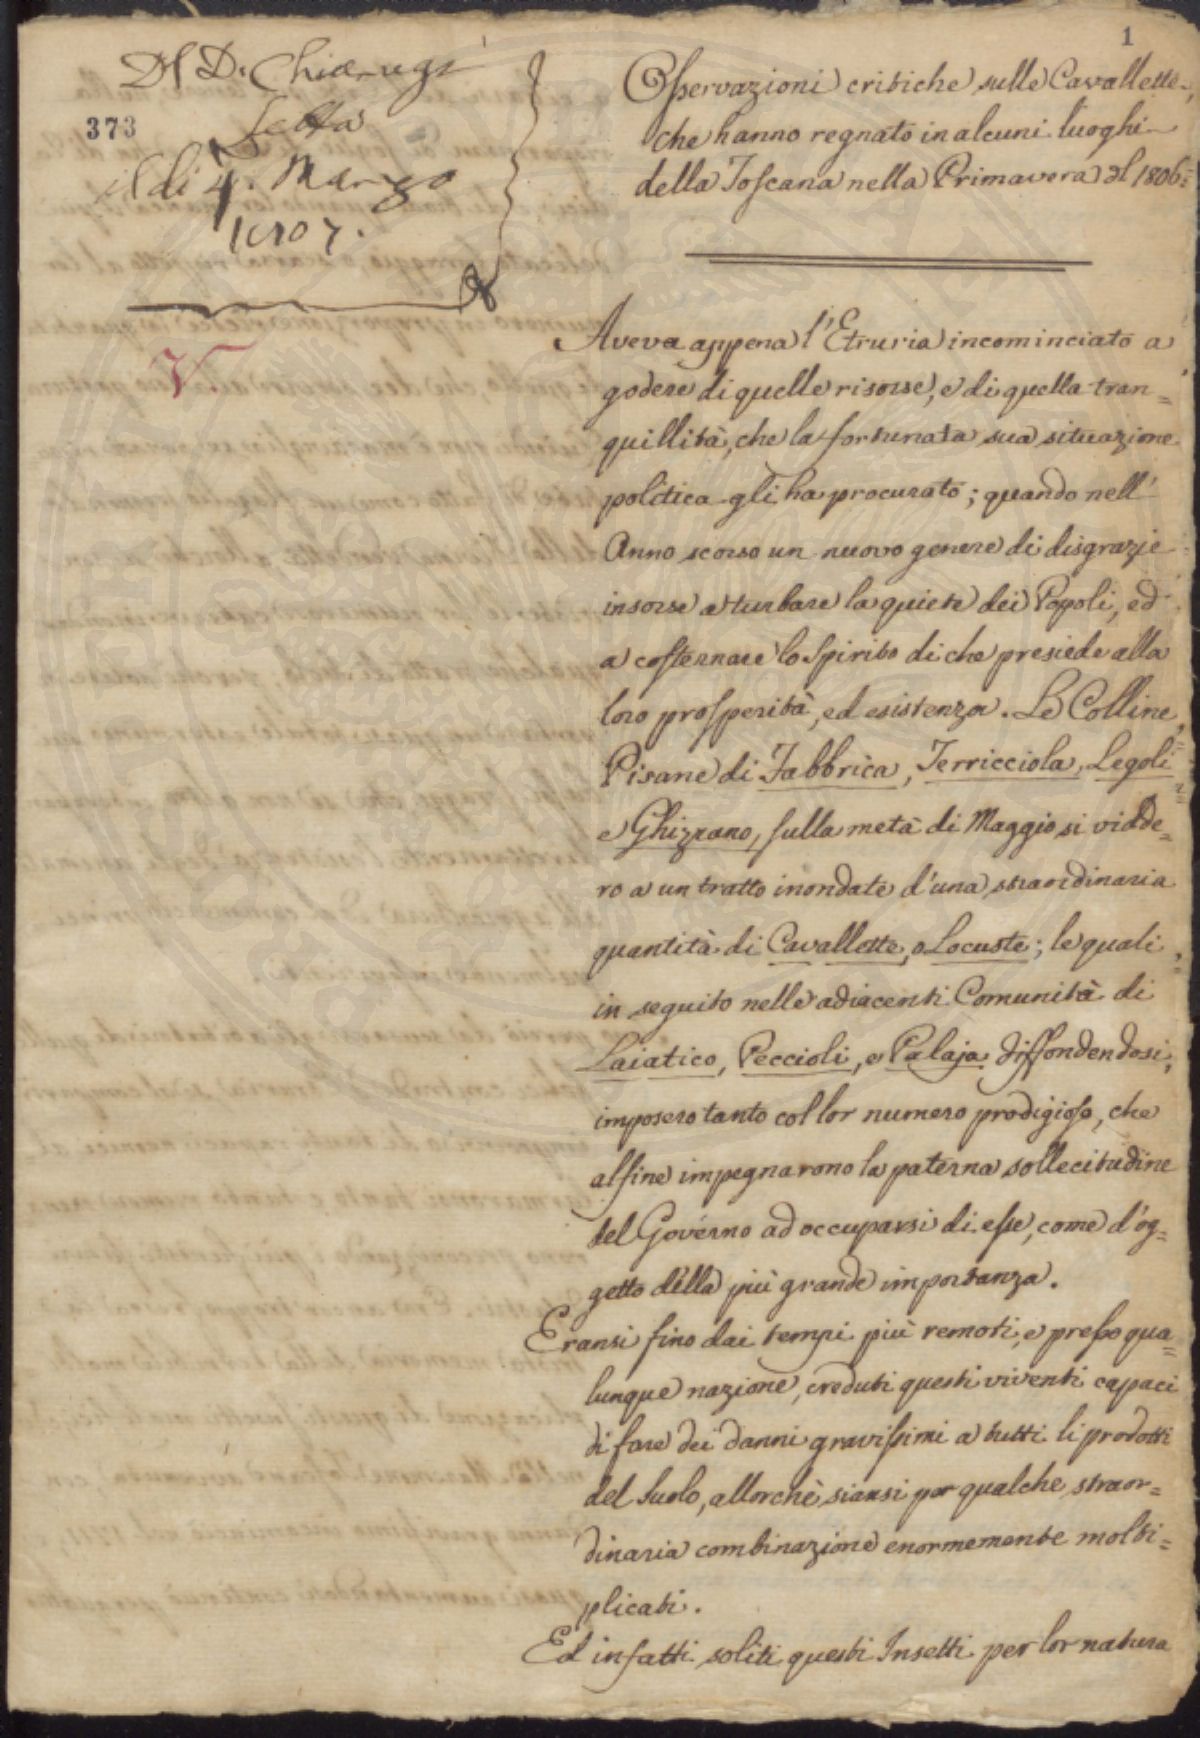 1
Del D. Chiarugi
373
Letta
il dì 4. Marzo
1807.
V.
Osservazioni critiche sulle Cavallette,
che hanno regnato in alcuni luoghi
della Toscana nella Primavera del 1806.
Aveva appena l'Etruria incominciato a
godere di quelle risorse, e di quella tran=
quillità, che la fortunata sua situazione
politica gli ha procurato; quando nell'
Anno scorso un nuovo genere di disgrazie
insorse a turbare la quiete dei Popoli, ed
a costernare lo Spirito di che presiede alla
loro prosperità, ed esistenza. Le Colline
Pisane di Fabbrica, Terricciola, Legoli
e Ghizzano, sulla metà di Maggio si vidde=
ro a un tratto inondate d'una straordinaria
quantità di Cavallette, o Locuste; le quali
in seguito nelle adiacenti Comunità di
Laiatico, Peccioli, e Palaja diffondendosi,
imposero tanto col lor numero prodigioso, che
alfine impegnarono la paterna sollecitudine
del Governo ad occuparsi di esse, come d'og=
getto della più grande importanza.
Eransi fino dai tempi più remoti, e presso qua=
lunque nazione, creduti questi viventi capaci
di fare dei danni gravissimi a tutti li prodotti
del Suolo, allorchè siansi per qualche straor=
dinaria combinazione enormemente molti=
plicati.
Ed infatti soliti questi Insetti per lor natura